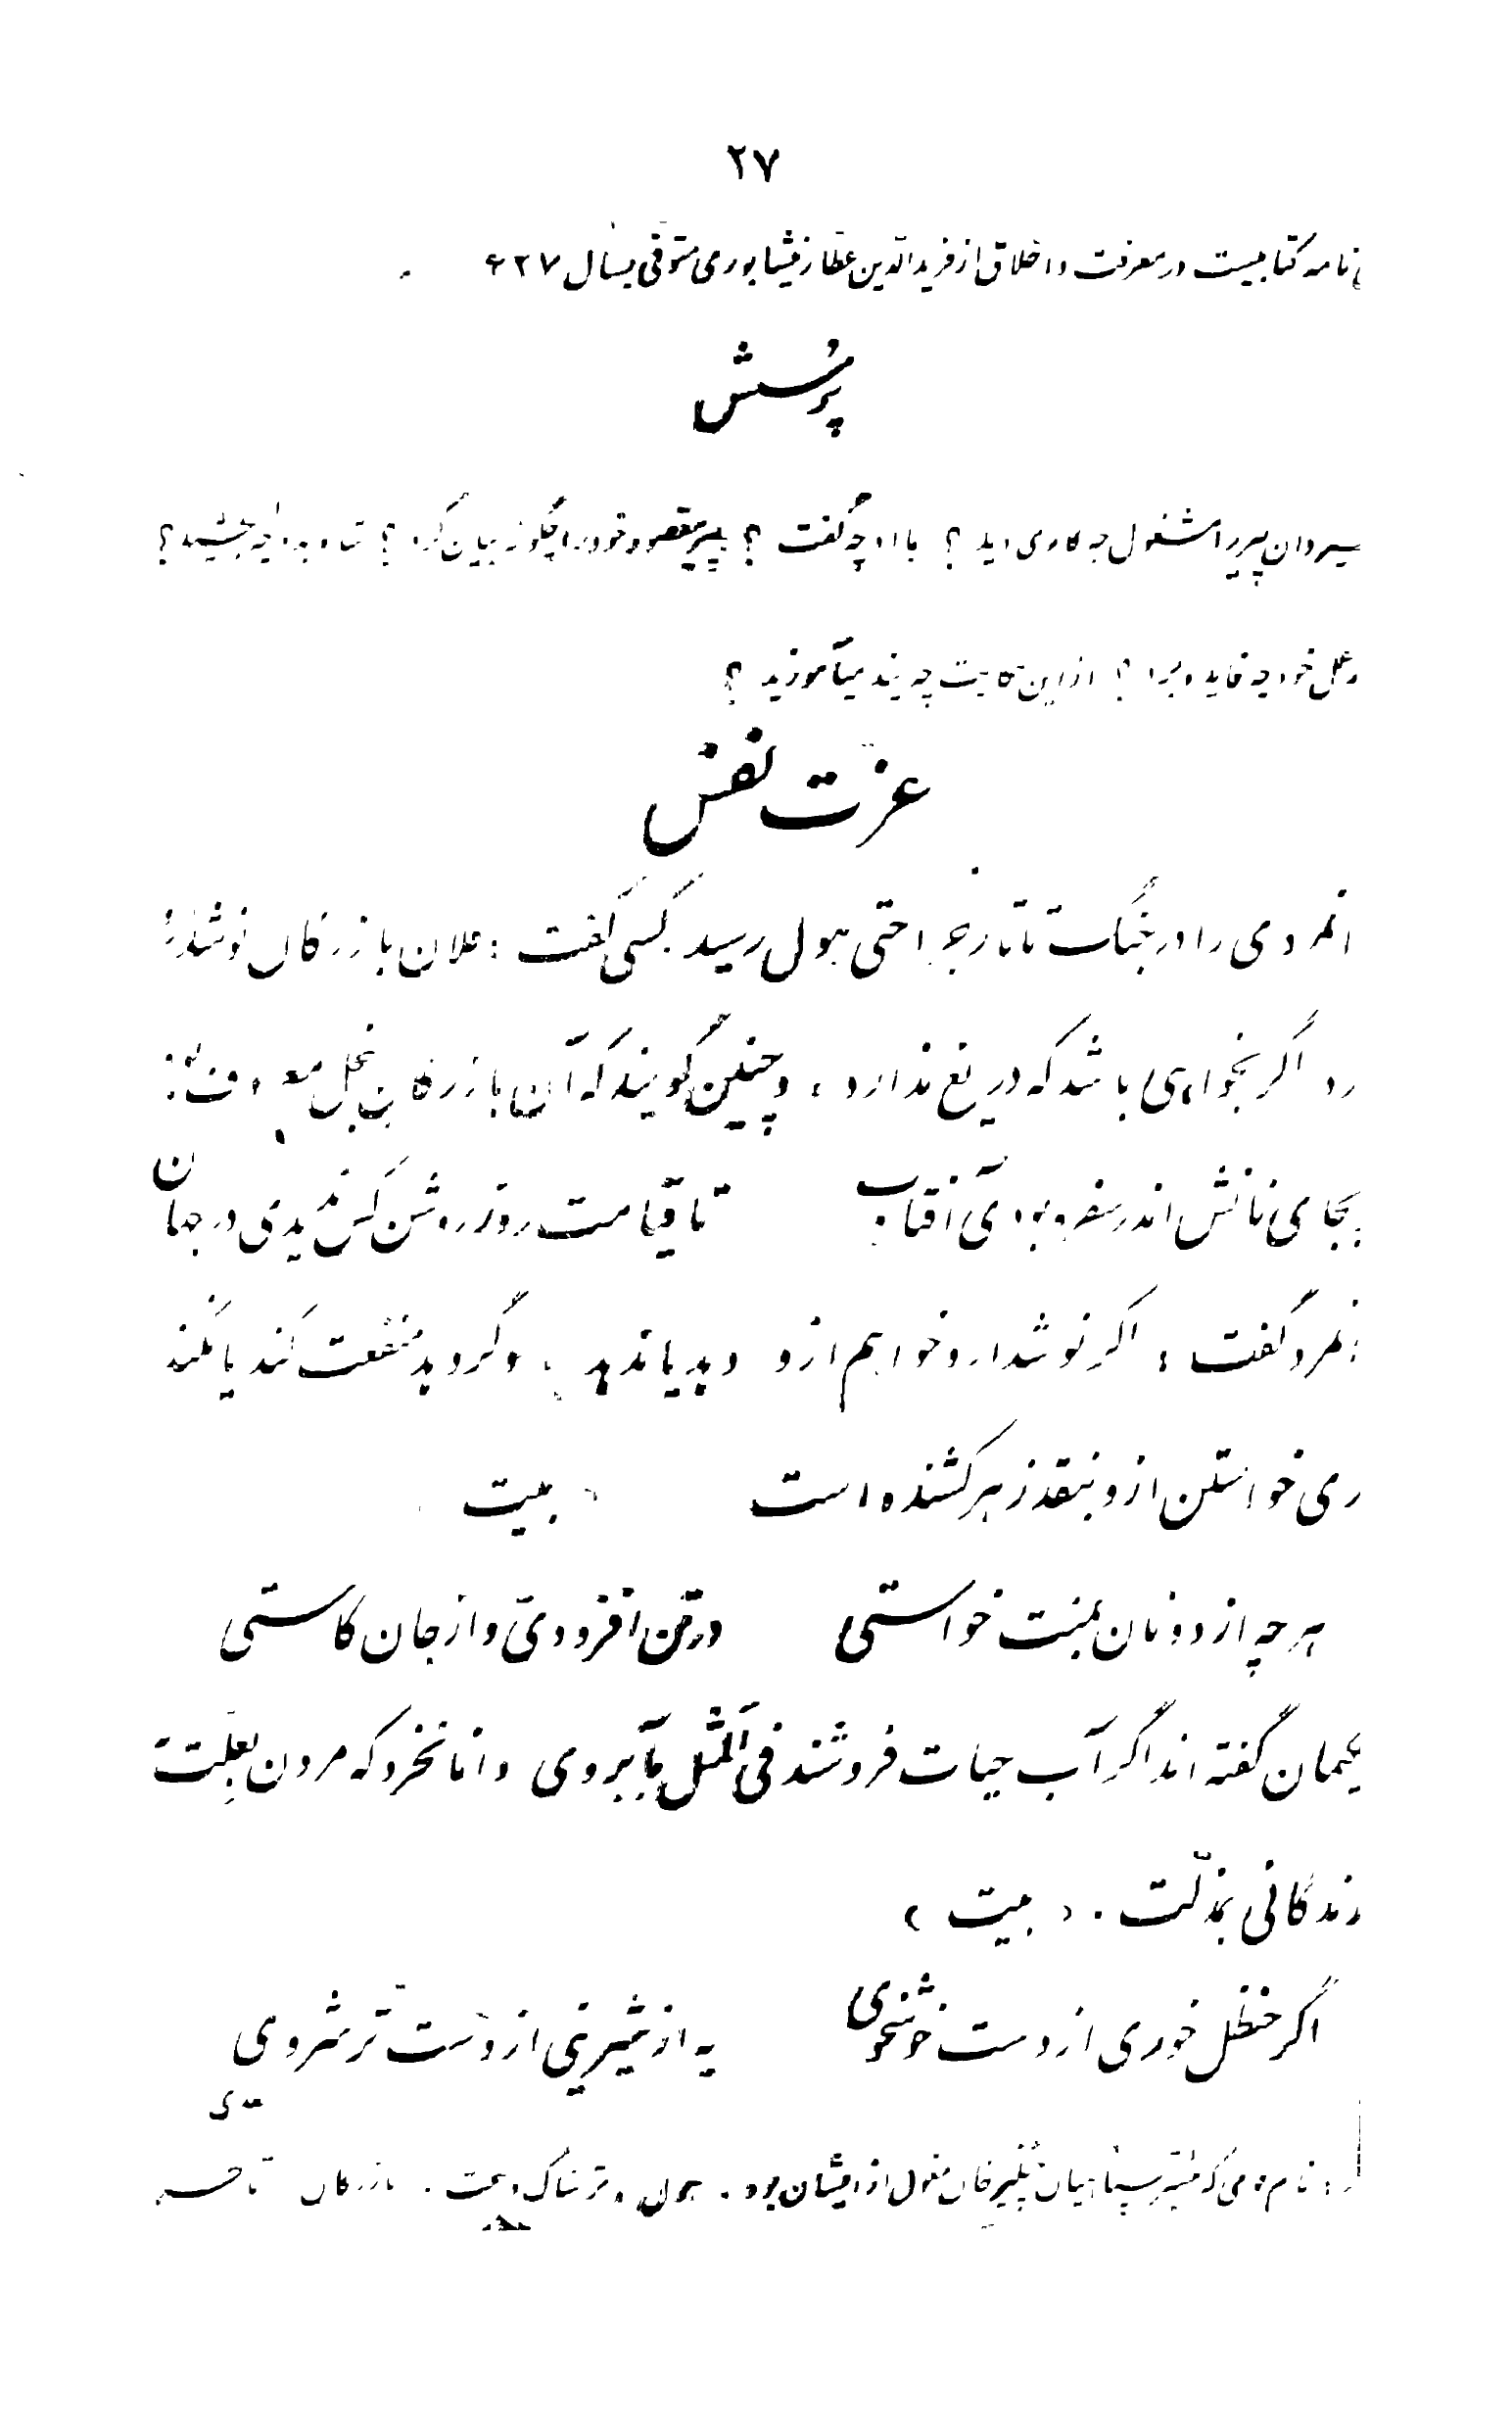 ۲۷
نامه کتابیست در معرفت و اخلاق از فریدالدّین عطّار نیشابوری متوفّی بسال ۶۲۷
پُرسش
پیر را مشغول چه کاری دید ؟ با او چه گفت ؟ پیر مقصود خود را چگونه بیان کرد ؟ چه بخشید ؟
خود چه فایده برد ؟ از این حکایت چه پند میآموزید ؟
عزّت نفس
انمردی را در جنگ تاتار جراحتی هول رسید کسی گفت : فلان بازرگان نوشدارو
رد اگر بخواهی باشد که دریغ ندارد ، و چنین گویند که آن بازرگان ببخل معروف
بجای نانش اندر سفره بودی آفتاب تا قیامت روز روشن کس ندیدی در جهان
انمرد گفت : اگر نوشدارو خواهم از و دهد یا ندهد ، وگر دهد منفعت کند یا نکند
ری خواستن از و بنقد زهر کشنده است ( بیت
هر چه از دونان بمنّت خواستی در تن افزودی و از جان کاستی
یمان گفته اند اگر آب حیات فروشند فی المثل بآبروی دانا نخرد که مردن بعلّت
زندگانی بمذلّت . ( بیت )
اگر حنظل خوری از دست خوشخوی به از شیرینی از دست ترشروی
نام قومی که بیشتر سپاهیان چنگیز خان مغول از ایشان بود . هول ترسناک . بازرگان تاجر